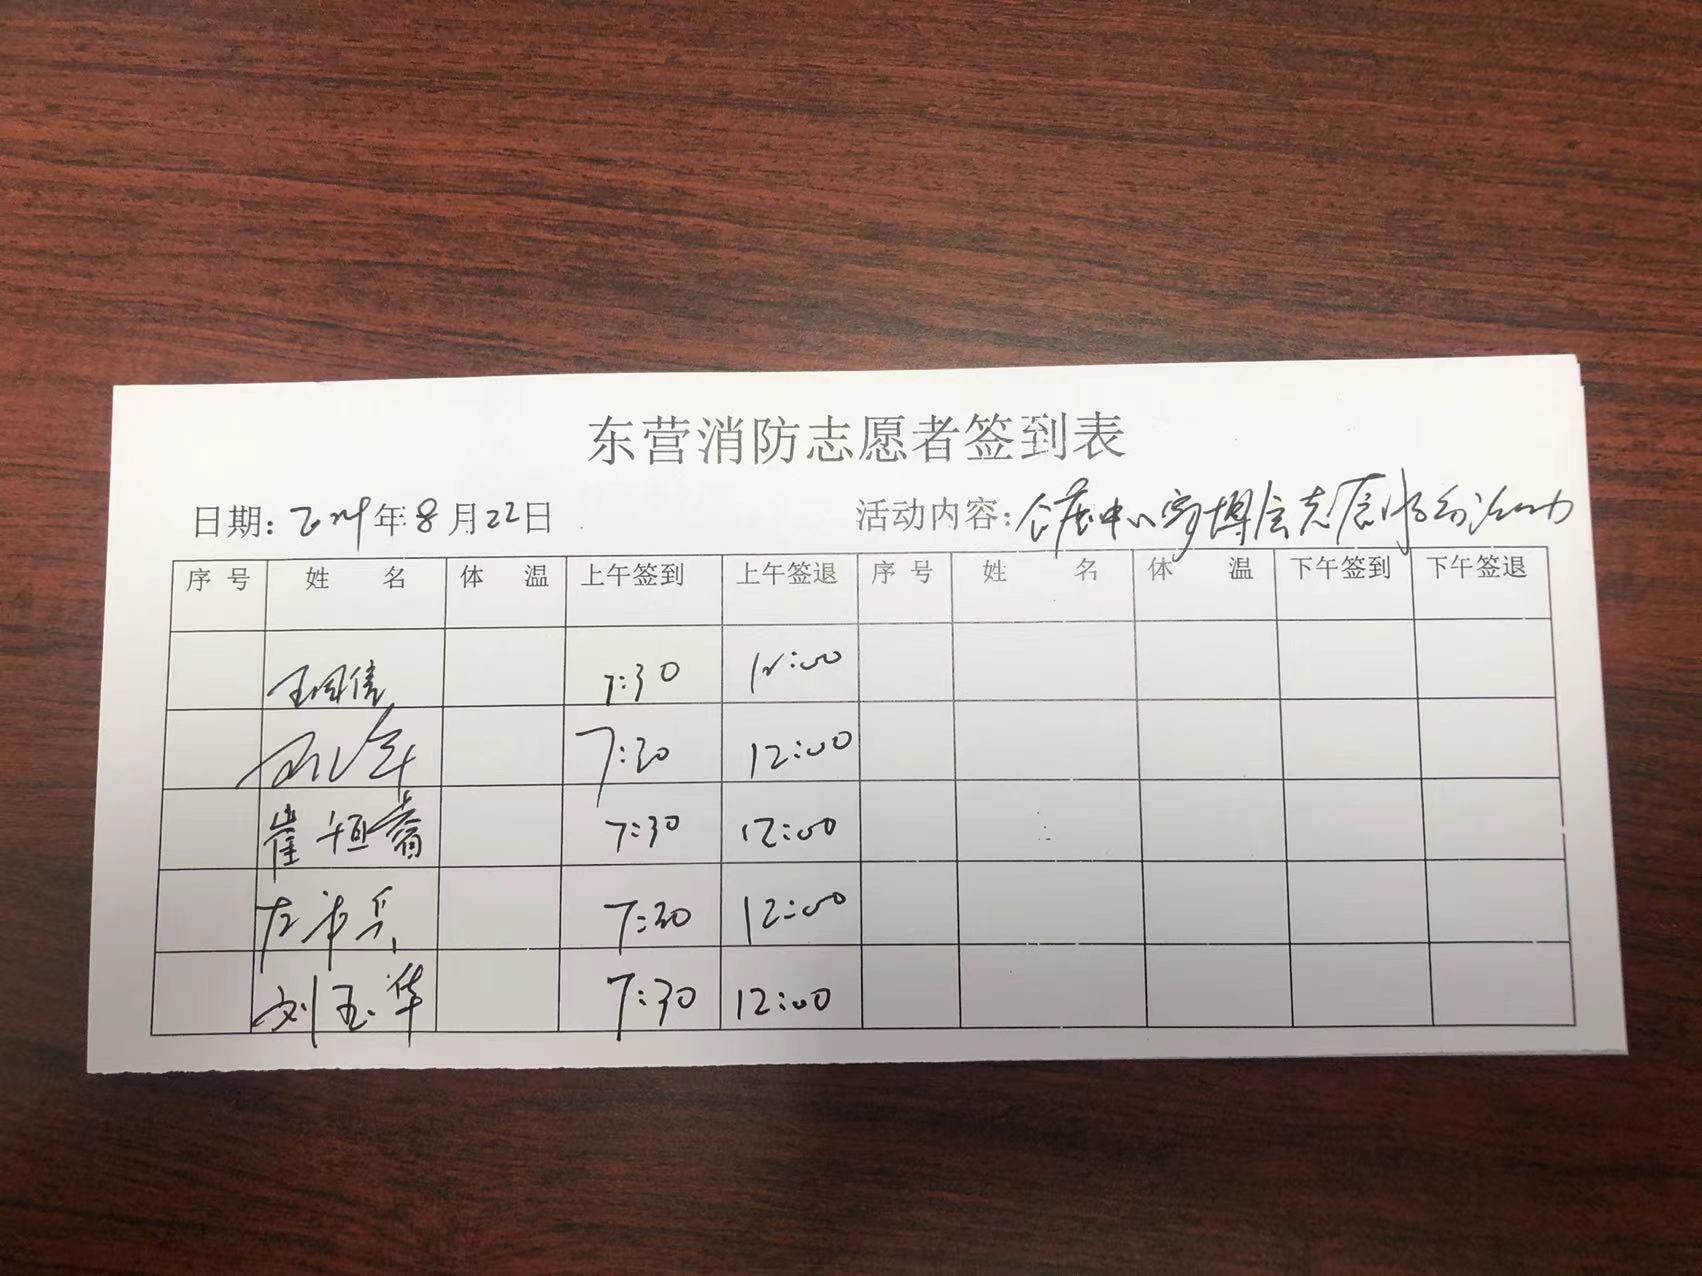 东营消防志愿者签到表
日期: 年8月22日 活动内容: 中心 博会志愿 活动
序号 姓 名 体 温 上午签到 上午签退 序号 姓 名 体 温 下午签到 下午签退
王国信 7:30 12:00
7:30 12:00
崔恒睿 7:30 12:00
左 兵 7:30 12:00
刘玉华 7:30 12:00